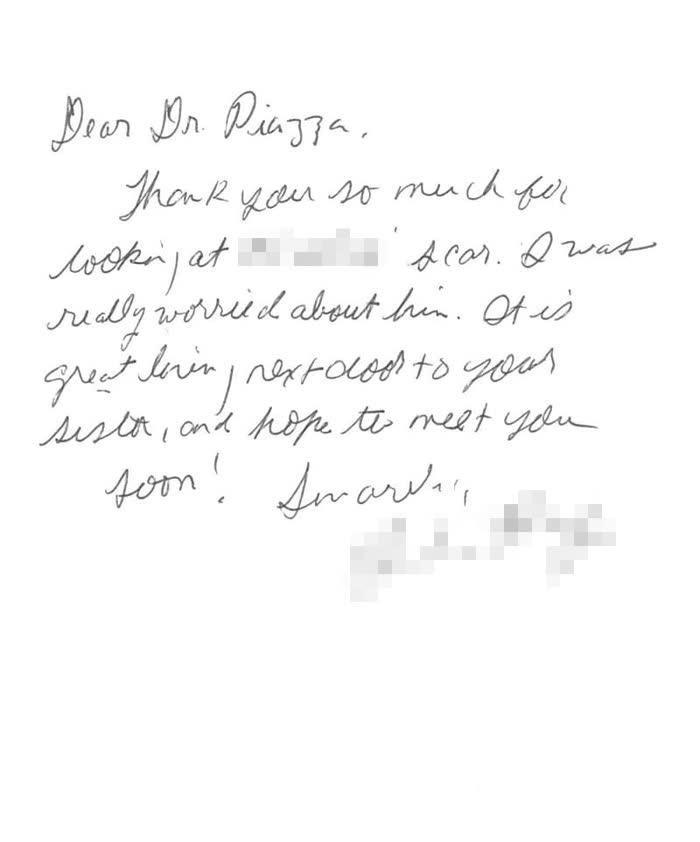 Dear Dr. Piazza,
Thank you so much for
looking at scar. I was
really worried about him. It is
great living next door to your
sister, and hope to meet you
soon! Sincerely,